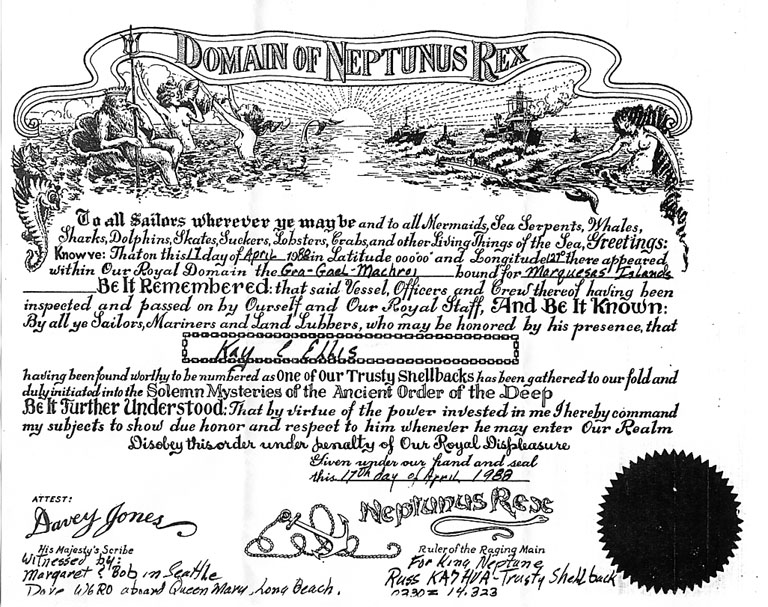 DOMAIN OF NEPTUNUS REX
To all Sailors wherever ye may be and to all Mermaids, Sea Serpents, Whales,
Sharks, Dolphins, Skates, Suckers, Lobsters, Crabs, and other Living Things of the Sea, Greetings:
Know ye: That on this 17 day of April 1988 in Latitude 00°00' and Longitude 127° there appeared
within Our Royal Domain the Gra-Gael-Machree bound for Marquesas Islands
Be It Remembered: that said Vessel, Officers and Crew thereof having been
inspected and passed on by Ourself and Our Royal Staff, And Be It Known:
By all ye Sailors, Mariners and Land Lubbers, who may be honored by his presence, that
Kay C Ellis
having been found worthy to be numbered as One of Our Trusty Shellbacks has been gathered to our fold and
duly initiated into the Solemn Mysteries of the Ancient Order of the Deep
Be It Further Understood: That by virtue of the power invested in me I hereby command
my subjects to show due honor and respect to him whenever he may enter Our Realm
Disobey this order under penalty of Our Royal Displeasure
Given under our hand and seal
this 17th day of April 1988
ATTEST:
Davey Jones
Neptunus Rex
His Majesty's Scribe
Ruler of the Raging Main
Witnessed by:
For King Neptune
Margaret & Bob in Seattle
Russ KA7HUA - Trusty Shellback
Dave W6RO aboard Queen Mary, Long Beach.
0230Z 14.323